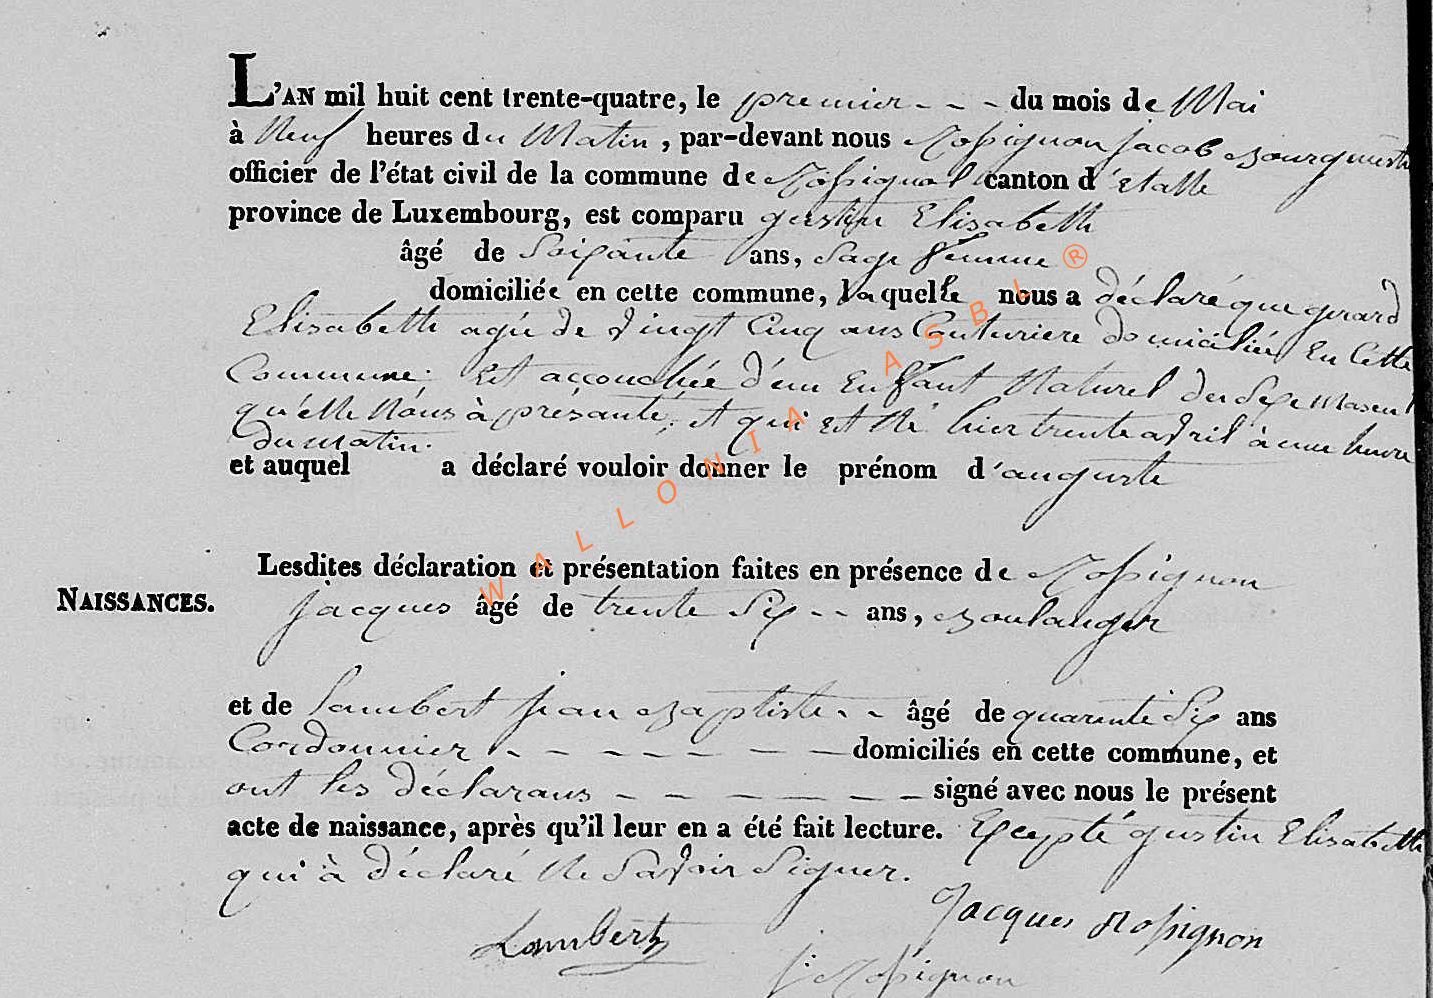 L'AN mil huit cent trente-quatre, le premier - - - du mois de Mai
à Neuf heures du Matin, par-devant nous Rossignon Jacob Bourguemestre
officier de l'état civil de la commune de Rossignol canton d'Etalle
province de Luxembourg, est comparu gustin Elisabeth
âgé de Soixante ans, Sage femme
domiciliée en cette commune, laquelle nous a déclaré que gerard
Elisabeth agée de vingt Cinq ans Couturiere domiciliée En Cette
Commune. Est accouchée d'un Enfant Naturel du Sexe Mascul
qu'elle Nous à présanté, et qui est Né hier trente avril à une heure
du matin.
et auquel a déclaré vouloir donner le prénom d'auguste
Lesdites déclaration et présentation faites en présence de Rossignon
NAISSANCES.
Jacques âgé de trente Six - - ans, Boulanger
et de Lambert Jean Baptiste - - âgé de quarente Six ans
Cordonnier - - - - - - - - domiciliés en cette commune, et
ont les déclarans - - - - - - - signé avec nous le présent
acte de naissance, après qu'il leur en a été fait lecture. Excepté gustin Elisabeth
qui à déclaré Ne Savoir Signer.
Jacques Rossignon
Lambert
J: Rossignon
WALLONIA ASBL ®